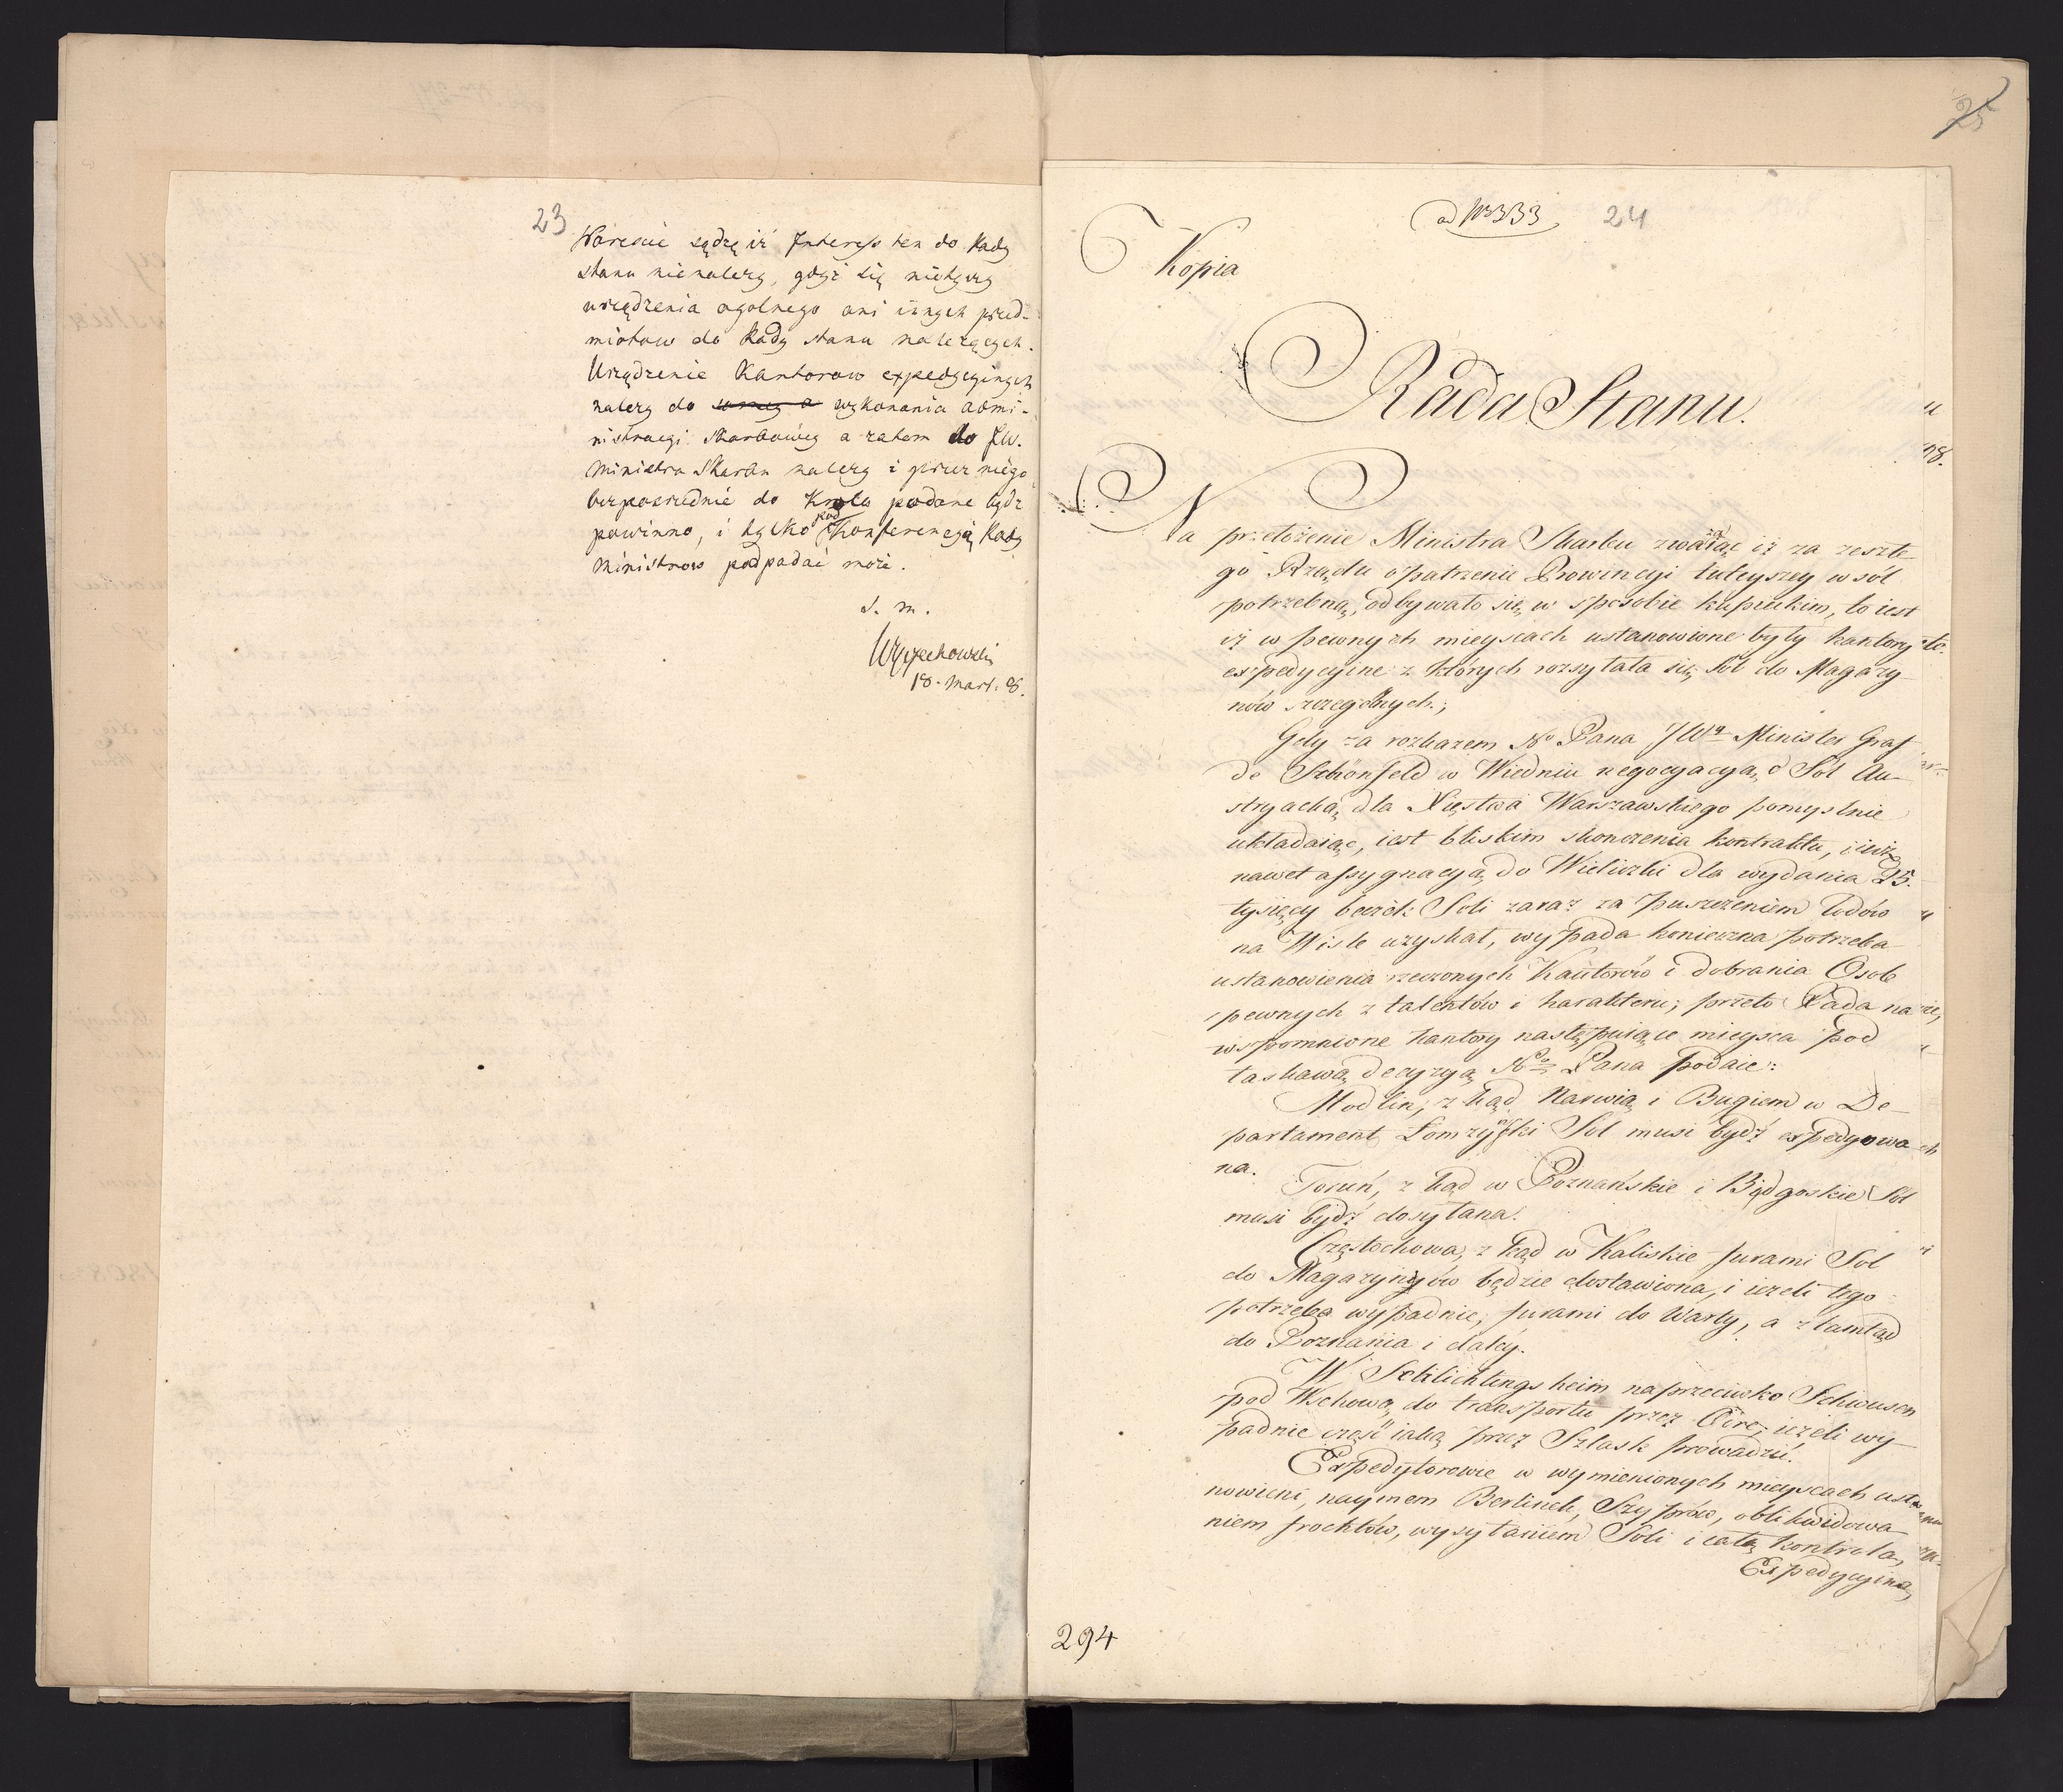 23
Wareście sądzę iż Interess ten do Rady
stanu nienależy, gdyż się nietyczy
urządzenia ogolnego ani innych przed-
miotow do Rady stanu należących.
Urządzenie Kantorow expedycyinych
należy do wykonania admi-
nistracyi skarbowey a zatem do JW.
Ministra Skarbu należy i przez niego
bezpośrednie do Krola podane bydz
powinno, i tylko pod Konferencyą Rady
Ministrow podpadać może.
S. m.
Wyczechowski
18. Mart. 8.
25
ad Nro 333 24
Kopia
Rada Stanu.
Na przełożenie Ministra Skarbu zważaiąc iż za zeszłe-
go Rządu opatrzenie Prowincyi tuteyszey w sól
potrzebną, odbywało się w sposobie kupieckim, to iest
iż w pewnych mieyscach ustanowione były kantory
expedycyine z których rozsyłała się Sól do Magazy-
nów szczególnych;
Gdy za rozkazem No Pana JWy Minister Graf
de Schönfeld w Wiedniu negocyacyą o Sól Au-
stryacką dla Xięstwa Warszawskiego pomyslnie
układaiąc, iest bliskim skonczenia kontraktu, i iuż
nawet assygnacyą do Wieliczki dla wydania 25.
tysięcy beczek Soli zaraz za puszczeniem lodów
na Wisle uzyskał, wypada konieczna potrzeba
ustanowienia rzeczonych Kantorów i dobrania Osob
pewnych z talentów i harakteru; przeto Rada na
wspomnione kantory następuiące mieysca pod
łaskawą decyzyą No Pana podaie:
Modlin, z kąd Narwią i Bugiem w De-
partament Łomzyński Sól musi bydź expedyowa-
na.
Toruń, z kąd w Poznańskie i Bydgoskie Sól
musi bydź dosyłana.
Częstochowa, z kąd w Kaliskie furami Sol
do Magazynów będzie dostawiona, i ieżeli tego
potrzeba wypadnie, furami do Warty, a ztamtąd
do Poznania i daléy.
W Schlichtingsheim naprzeciwko Schwusen
pod Wschową do transportu przez Odrę, ieżeli wy-
padnie część iaką przez Szlask prowadzić.
Expedytorowie w wymienionych mieyscach usta-
nowieni, naymem Berlinek, Szyprów, oblikwidowa-
niem frochtów, wysyłaniem Soli i całą kontrolą
Expedycyiną
294